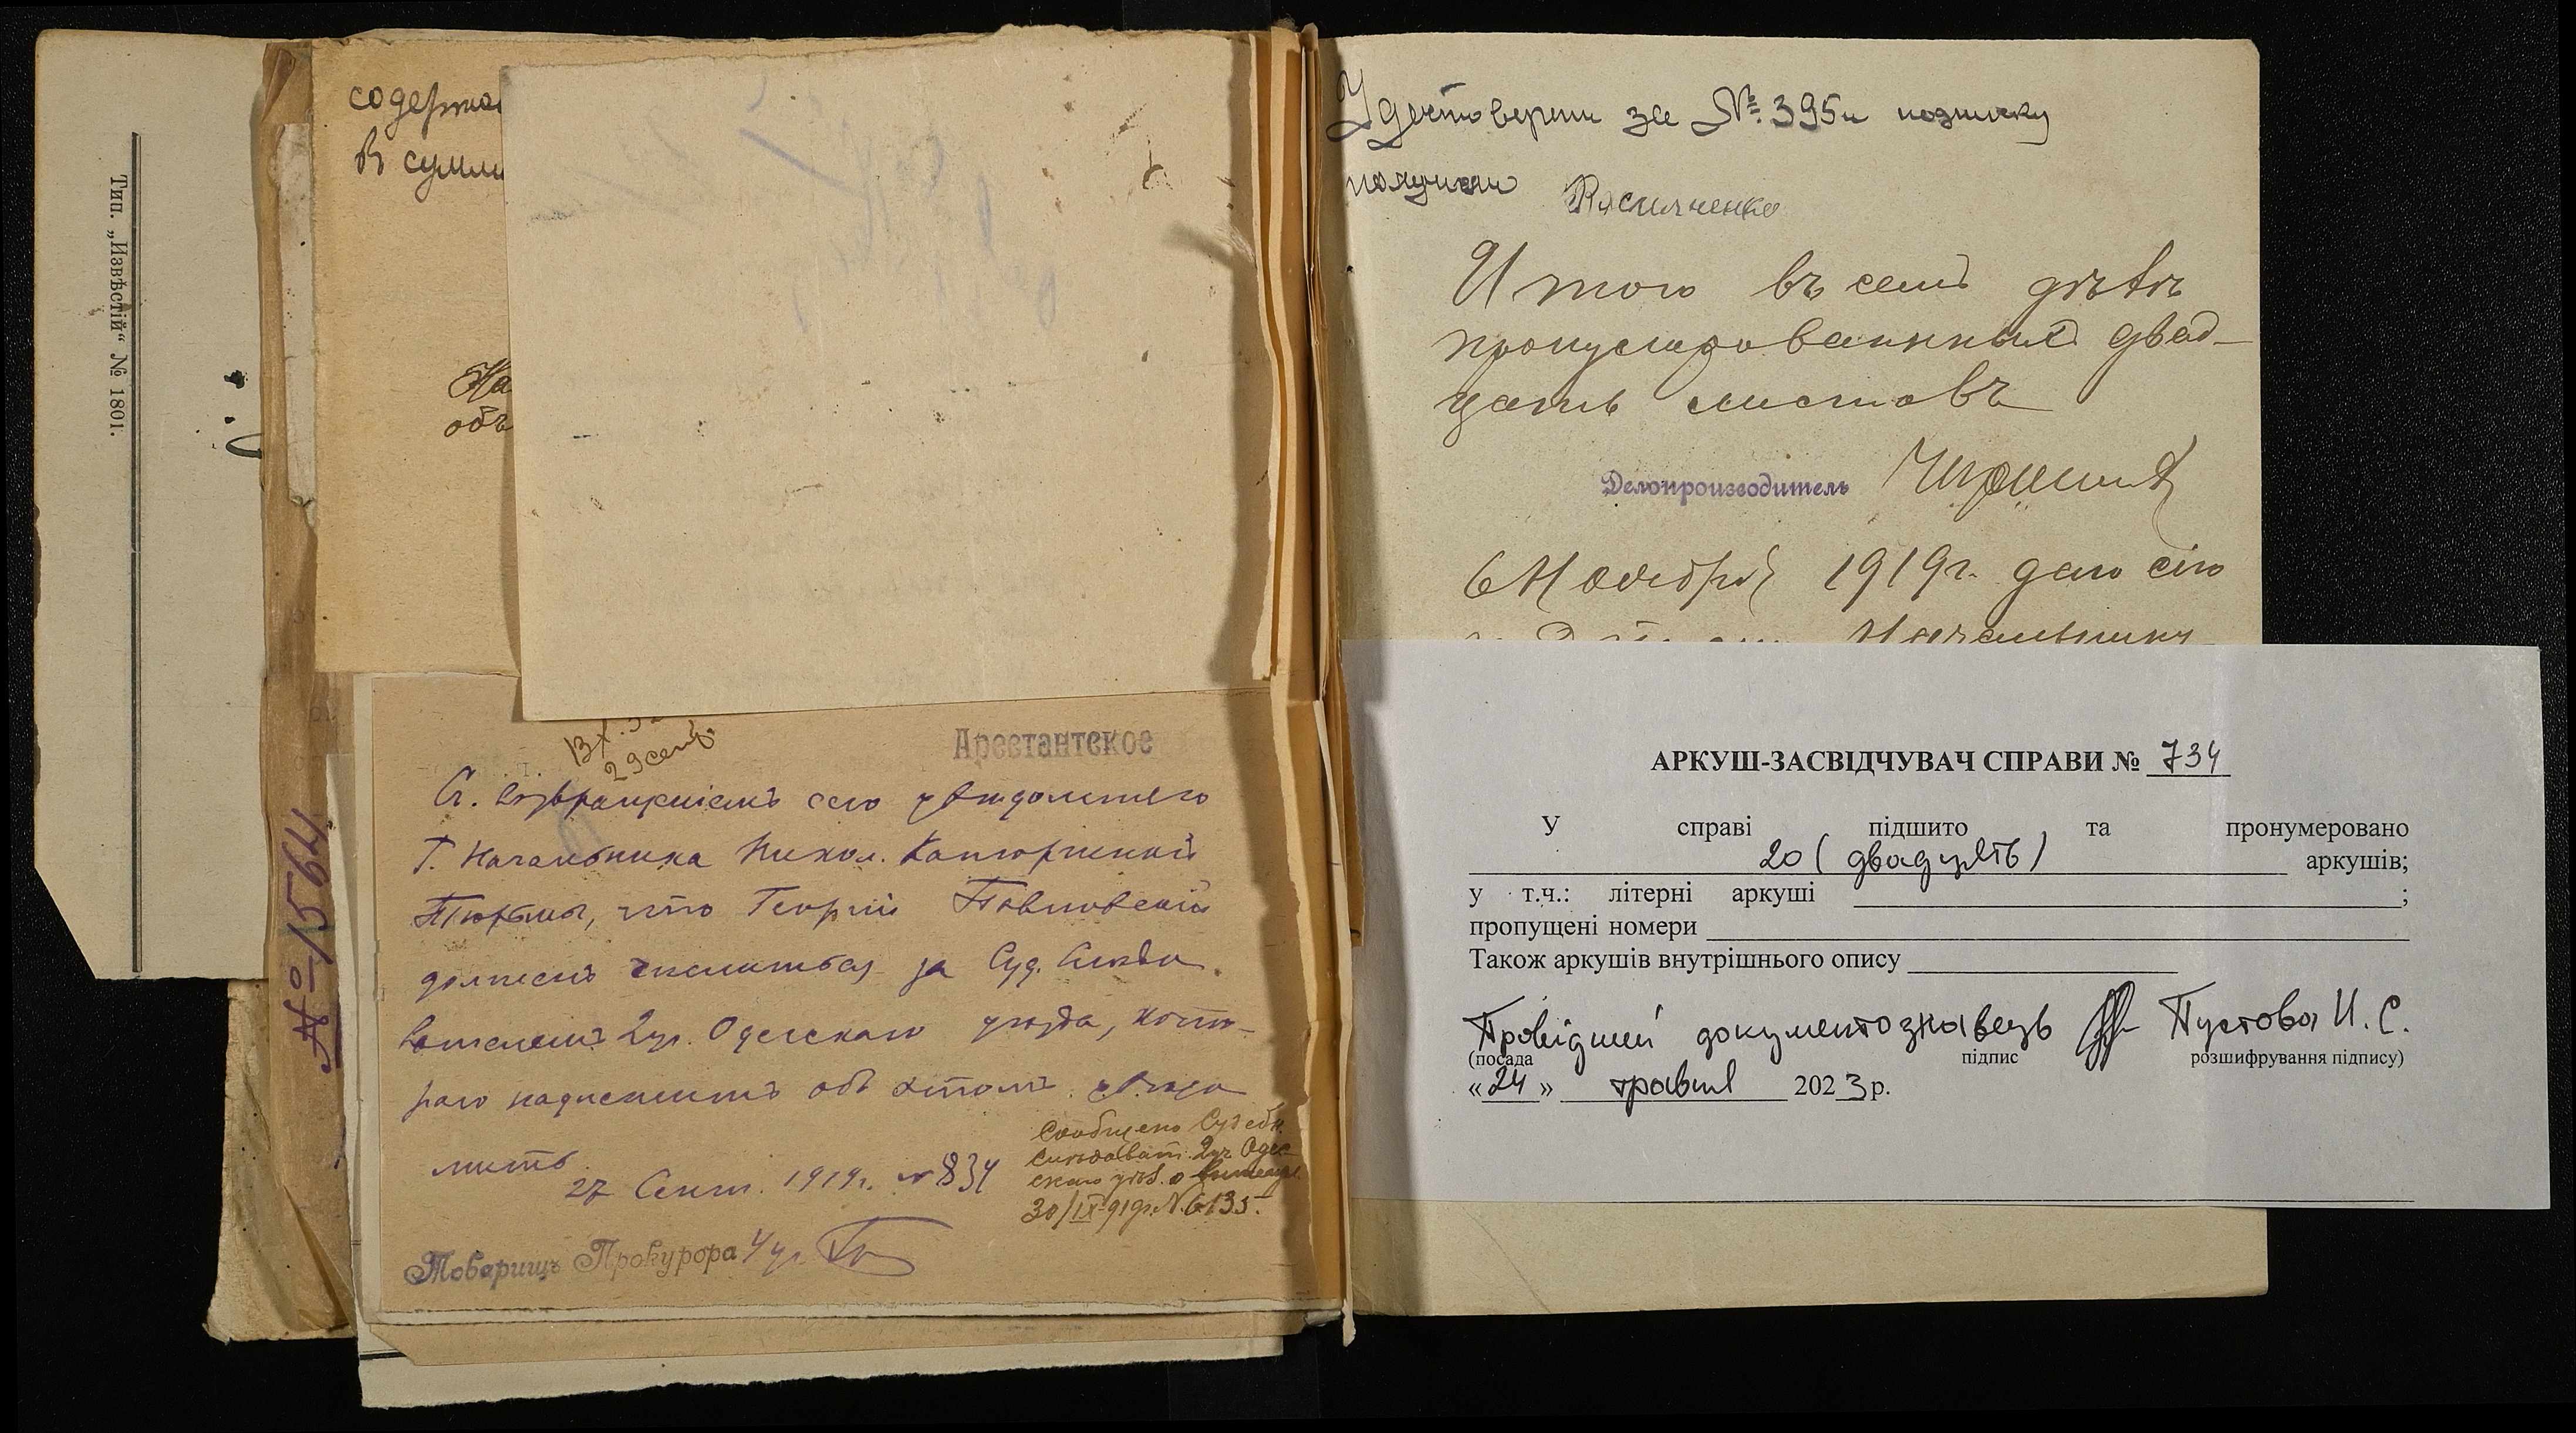 Тип. „Извѣстій“ № 1801.
№ 1564
содержа
въ сумм
На
объ
29 сент.
Арестантское
Съ возвращеніемъ сего увѣдомляю
Г. Начальника Никол. Каторжной
Тюрьмы, что Георгій
долженъ числиться за Суд. Слѣдо
вателемъ 2 уч. Одесскаго уѣзда, кото-
раго надлежитъ объ этомъ увѣдо
мить
27 Сент. 1919 г. № 834
Сообщено Судебн.
Слѣдоват. 2 уч. Одес
скаго уѣз. о
30/IX-919г. № 6135.
Товарищъ Прокурора 4 уч.
Удостоверени за № 395 и подписку
получил Василченко
Итого въ семъ дѣлѣ
пронумерованныхъ двад-
цать листовъ
Делопроизводитель
6 Ноября 1919 г. даю сію
Начальнику
АРКУШ-ЗАСВІДЧУВАЧ СПРАВИ № 734
У справі підшито та пронумеровано
20 (двадцять) аркушів;
у т.ч.: літерні аркуші ;
пропущені номери
Також аркушів внутрішнього опису
Провідний документознавець Пустова И. С.
(посада підпис розшифрування підпису)
«24» травня 2023 р.